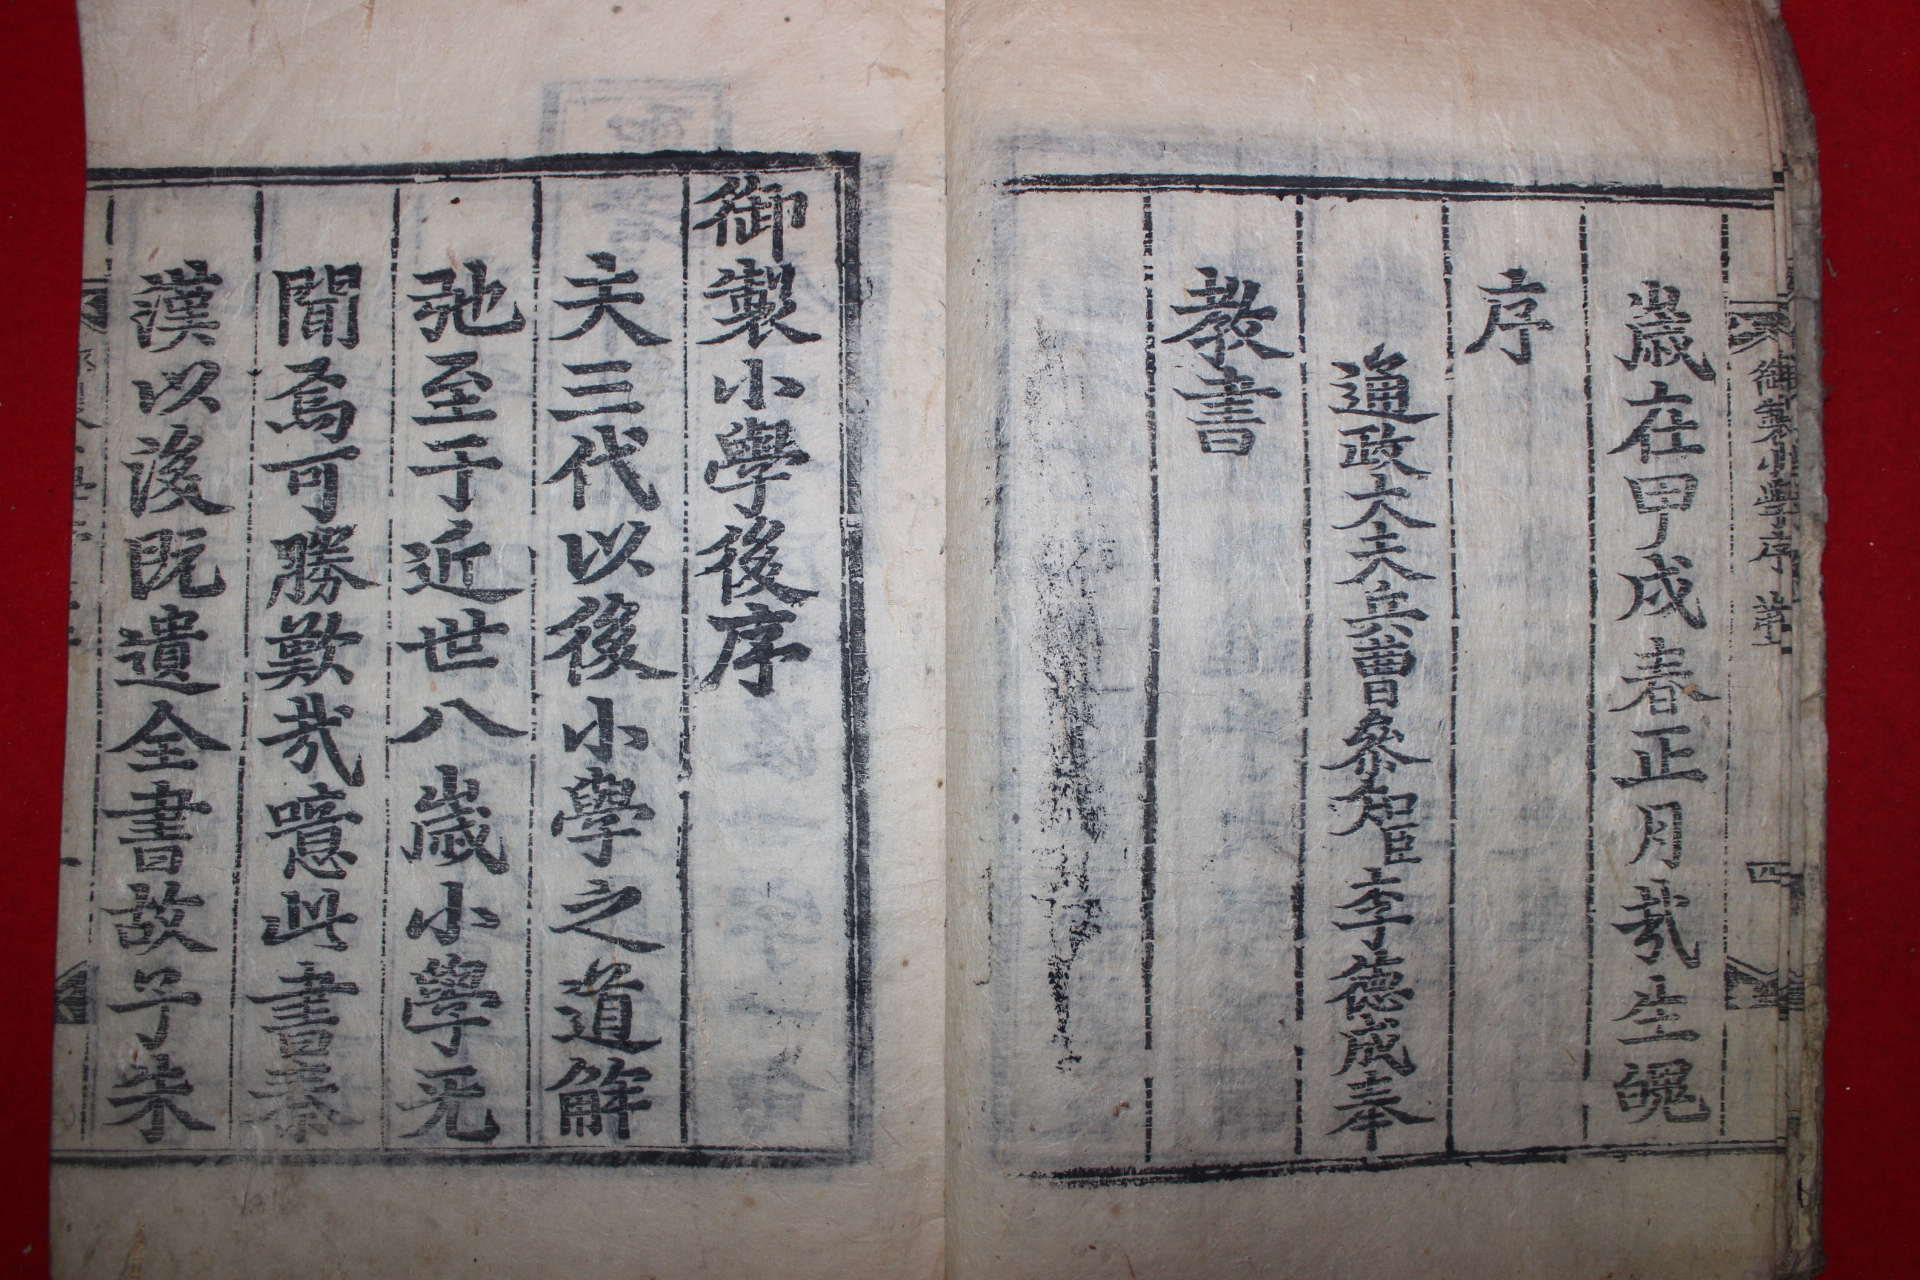 御製小學序 四
歲在甲戌春正月哉生魄
序
通政大夫兵曹參知臣李德成奉
教書
御製小學後序
夫三代以後小學之道解
弛至于近世八歲小學无
聞焉可勝歎哉噫此書秦
漢以後旣遺全書故子朱